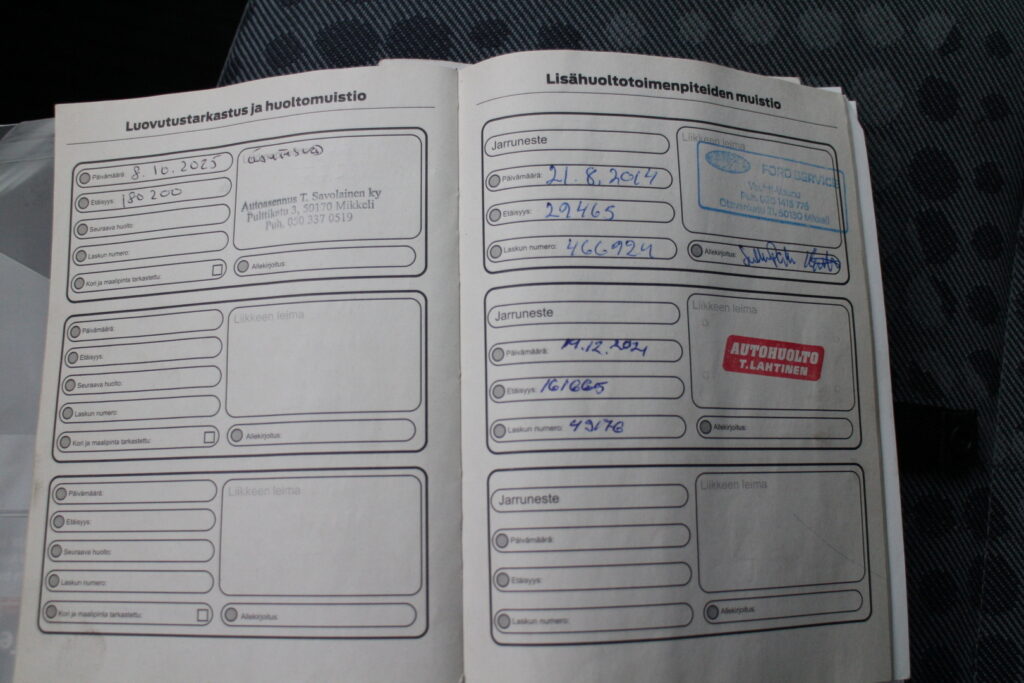 Luovutustarkastus ja huoltomuistio
Päivämäärä: 8.10.2025
Etäisyys: 180 200
Seuraava huolto:
Laskun numero:
Kori ja maalipinta tarkastettu:
Autoasennus T. Savolainen ky
Pulttikatu 3, 50170 Mikkeli
Puh. 050 337 0519
Allekirjoitus:
Päivämäärä:
Etäisyys:
Seuraava huolto:
Laskun numero:
Kori ja maalipinta tarkastettu:
Liikkeen leima
Allekirjoitus:
Päivämäärä:
Etäisyys:
Seuraava huolto:
Laskun numero:
Kori ja maalipinta tarkastettu:
Liikkeen leima
Allekirjoitus:
Lisähuoltotoimenpiteiden muistio
Jarruneste
Päivämäärä: 21.8.2014
Etäisyys: 29465
Laskun numero: 466924
Liikkeen leima
FORD SERVICE
50130 Mikkeli
Allekirjoitus:
Jarruneste
Päivämäärä: 14.12.2021
Etäisyys: 161665
Laskun numero: 49176
Liikkeen leima
AUTOHUOLTO
T.LAHTINEN
Allekirjoitus:
Jarruneste
Päivämäärä:
Etäisyys:
Laskun numero:
Liikkeen leima
Allekirjoitus: